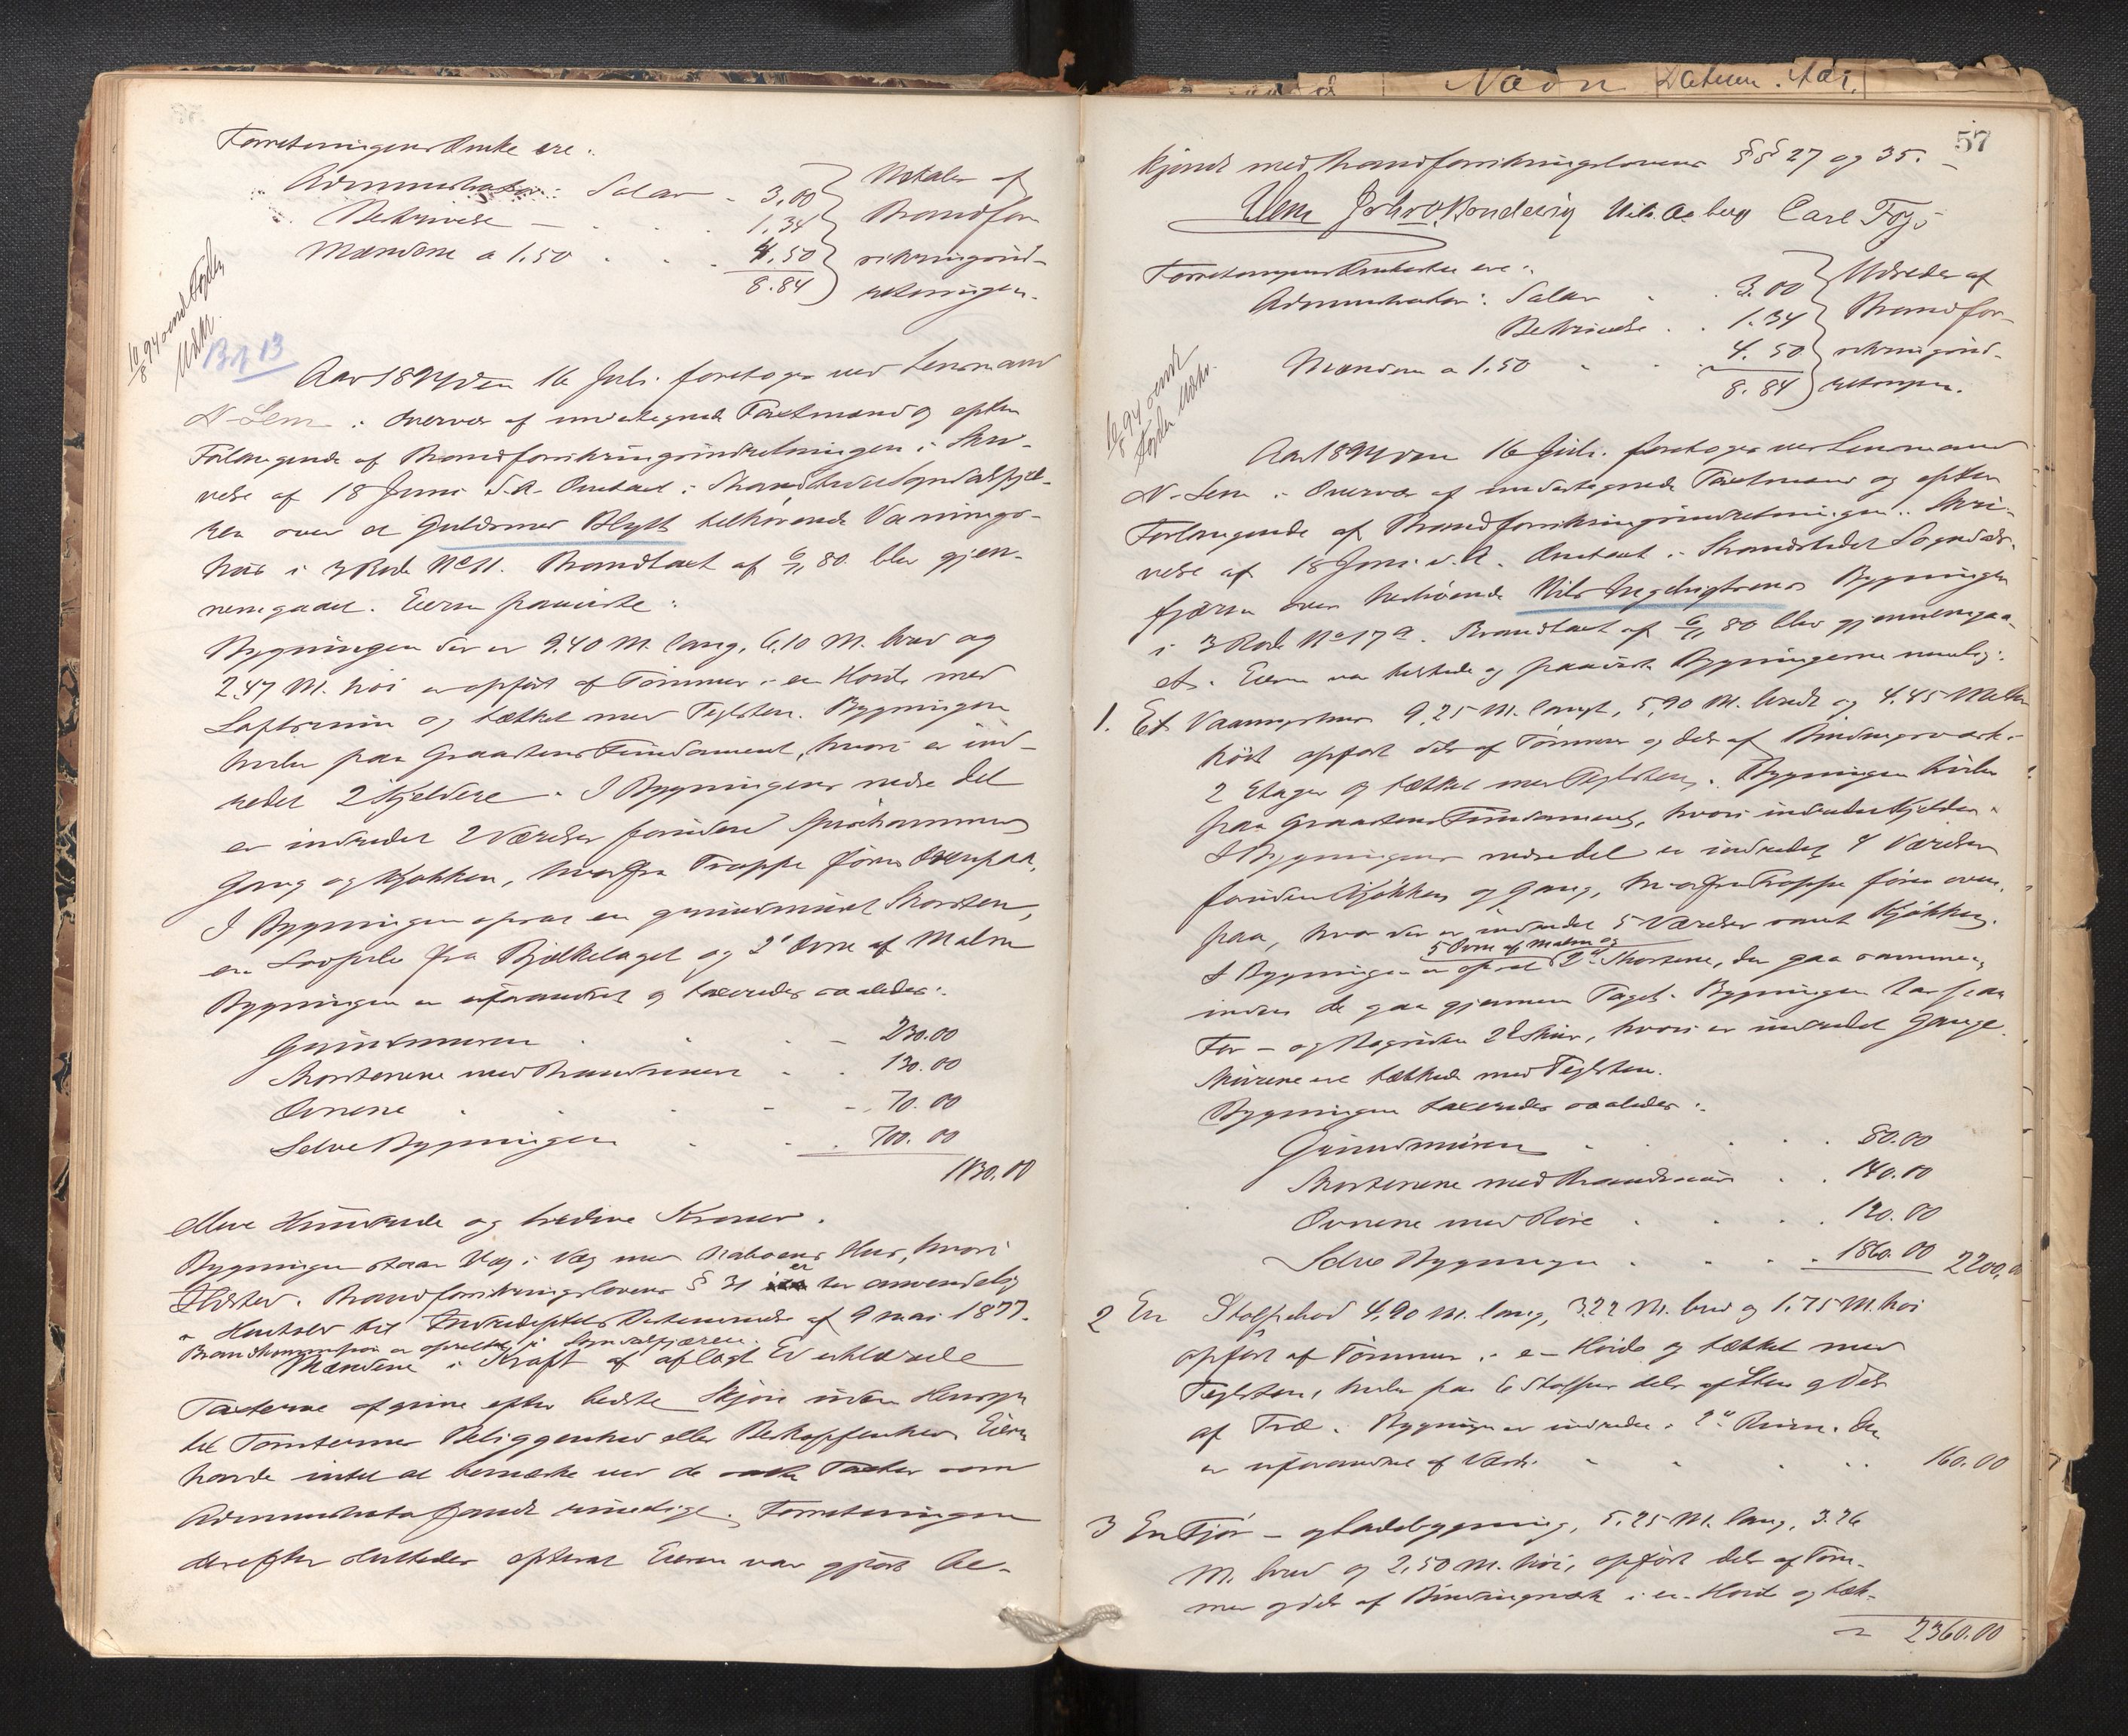 Forretningens Omk ere:
Administrator: Salær - 3,00
Beskrivelse - 1,34
Mændene a 1.50 . . . 4,50
8.84
Udredes af
Brandfor
sikringsind-
retningen.
10/8 94 sendt Fogden
Udskr.
Bf 13
Aar 1894 den 16 Juli foretoges ved Lensmand
N. Lem i Overvær af undertegnede Taxtmænd og efter
Forlangende af Brandforsikringsindretningen i Skri-
velse af 18 Juni d.A. Omtaxt i Strandstedet Sogndalsfjæ-
ren over et Guldsmed Blytt tilhørende Vaanings-
hus i 3 Rode No 11. Brandtaxt af 80 blev gjen-
nemgaaet. Eieren paaviste:
Bygningen der er 9.40 M. lang, 6,10 M. bred og
2,47 M. høi er opført af Tømmer i en Høide med
Loftsrum og tækket med Teglsten. Bygningen
hviler paa Graastens Fundament, hvori er ind-
redet 2 Kjeldere. I Bygningens nedre Del
er indredet 2 Værelser foruden Spisekammer
Gang og Kjøkken, hvorfra Trappe fører ovenpaa.
I Bygningen opsat en grundmuret Skorsten,
en fra Bjelkelaget og 2de Ovne af Malm
Bygningen er uforandret og taxeredes saaledes:
Grundmuren . . - 230.00
Skorstenene med Brandmure . . 130.00
Ovnene . . . - - 70.00
Selve Bygningen . . . 700.00
1130.00
elleve Hundrede og tredive Kroner.
Bygningen staar Væg i Væg med Naboens Hus, hvori
Ildsted. Brandforsikringslovens § 31 er her anvendelig
i Henhold til Indredeptets Bestemmelse af 9 mai 1877.
Brandkommission er oprettet i Sogndalsfjæren.
Mændene i Kraft af aflagt Ed erklærede
Taxterne afgivne efter bedste Skjøn uden Hensyn
til Tomternes Beliggenhed eller Beskaffenhed. Eieren
havde intet at bemærke ved de Taxter som
Administrator fandt rimelige. Forretningen
derefter sluttedes efterat Eieren var gjort be-
Navn Datum
57
kjendt med Brandforsikringslovens §§ 27 og 35. -
Lem Nils Aaberg Carl Foss
Forretningens Omkostn ere:
Administrator: Salær . . 3.00
Beskrivelse . . 1.34
Mændene a 1.50 . . . 4.50
8.84
Udredes af
Brandfor-
sikringsind-
retningen.
10/8 94 sendt
Fogden Udskr.
Aar 1894 den 16 Juli foretoges ved Lensmand
N. Lem i Overvær af undertegnede Taxtmænd og efter
Forlangende af Brandforsikringsindretningen i Skri-
velse af 18 Juni d.A. Omtaxt i Strandstedet Sogndals-
fjæren over Nils Ingebrigtsens Bygninger
i 3 Rode No 17a. Brandtaxt af 80 blev gjennemgaa-
et. Eieren var tilstede og paaviste Bygningerne nemlig:
1. Et Vaaningshus 9,25 M. langt, 5,90 M. bredt og 4,45 Meter
høit opført dels af Tømmer og dels af Bindingsværk i
2 Etager og tækket med Teglsten. Bygningen hviler
paa Graastens Fundament, hvori indredet Kjelder.
I Bygningens nedre Del er indredet 4 Værelser
foruden Kjøkken og Gang, hvorfra Trappe fører oven-
paa, hvor der er indredet 5 Værelser samt Kjøkken.
5 Ovne af Malm og
I Bygningen er opsat 2de Skorstene, der gaa sammen
inden de gaa gjennem Taget. Bygningen har paa
For - og Bagsiden 2de Skur, hvori er indredet Gange.
Skurene ere tækkede med Teglsten.
Bygningen taxeredes saaledes:
Grundmuren . . . . 80.00
Skorstenene med Brandmur . . 140.00
Ovnene med Røre . . . . 120.00
Selve Bygningen . . . . 1860.00 2200,00
2 En Stolpebod 4,90 M. lang, 3.22 M. bred og 1,75 M. høi
opført af Tømmer i en Høide og tækket med
Teglsten, hviler paa 6 Stolper dels af Sten og dels
af Træ. Bygningen er indredet i 2de Rum. Den
er uforandret af Værdi . . . . 160.00
3 En Fjøs - og Ladebygning, 5.25 M. lang, 3.26
M. bred og 2,50 M. høi, opført dels af Tøm-
mer og dels af Bindingsværk i en Høide og tæk-
2360.00